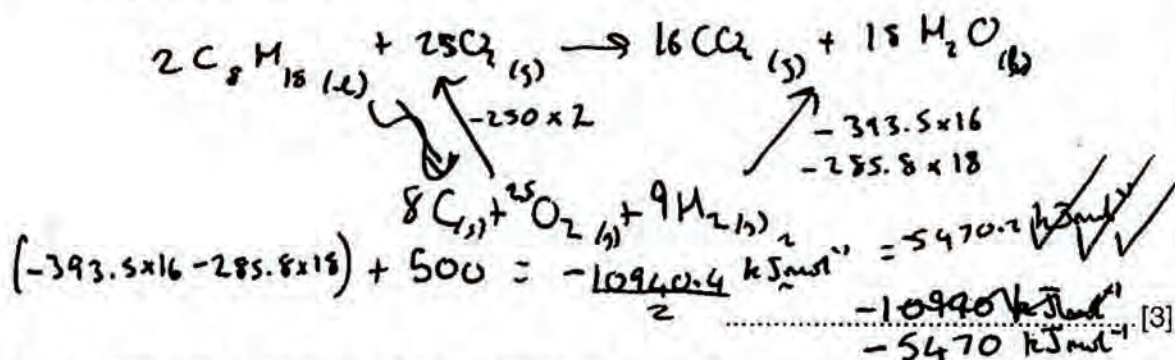 2 C₈H₁₈ (l) + 25O₂ (g) → 16CO₂ (g) + 18 H₂O (l)
-250 × 2
- 393.5×16
- 285.8 × 18
8 C(s) + 25 O₂ (g) + 9H₂ (g)
(-393.5×16 -285.8×18) + 500 = -10940.4 / 2 kJmol⁻¹ = -5470.2 kJmol⁻¹
-10940 kJmol⁻¹
-5470 kJmol⁻¹ [3]